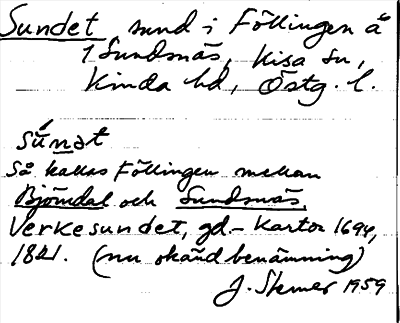 Sundet sund i Föllingen å
1 Sundsnäs, Kisa sn,
Kinda hd, Östg. l.
súnat
Så kallas Föllingen mellan
Björndal och Sundsnäs.
Verkesundet, gd-kartor 1694,
1841. (nu okänd benämning)
J. Stemer 1959